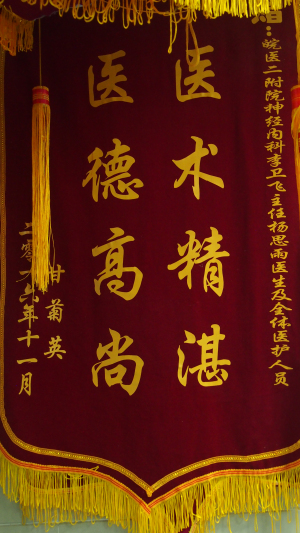 赠：
皖医二附院神经内科李卫飞主任杨思雨医生及全体医护人员
医术精湛
医德高尚
甘菊英
二零一六年十一月